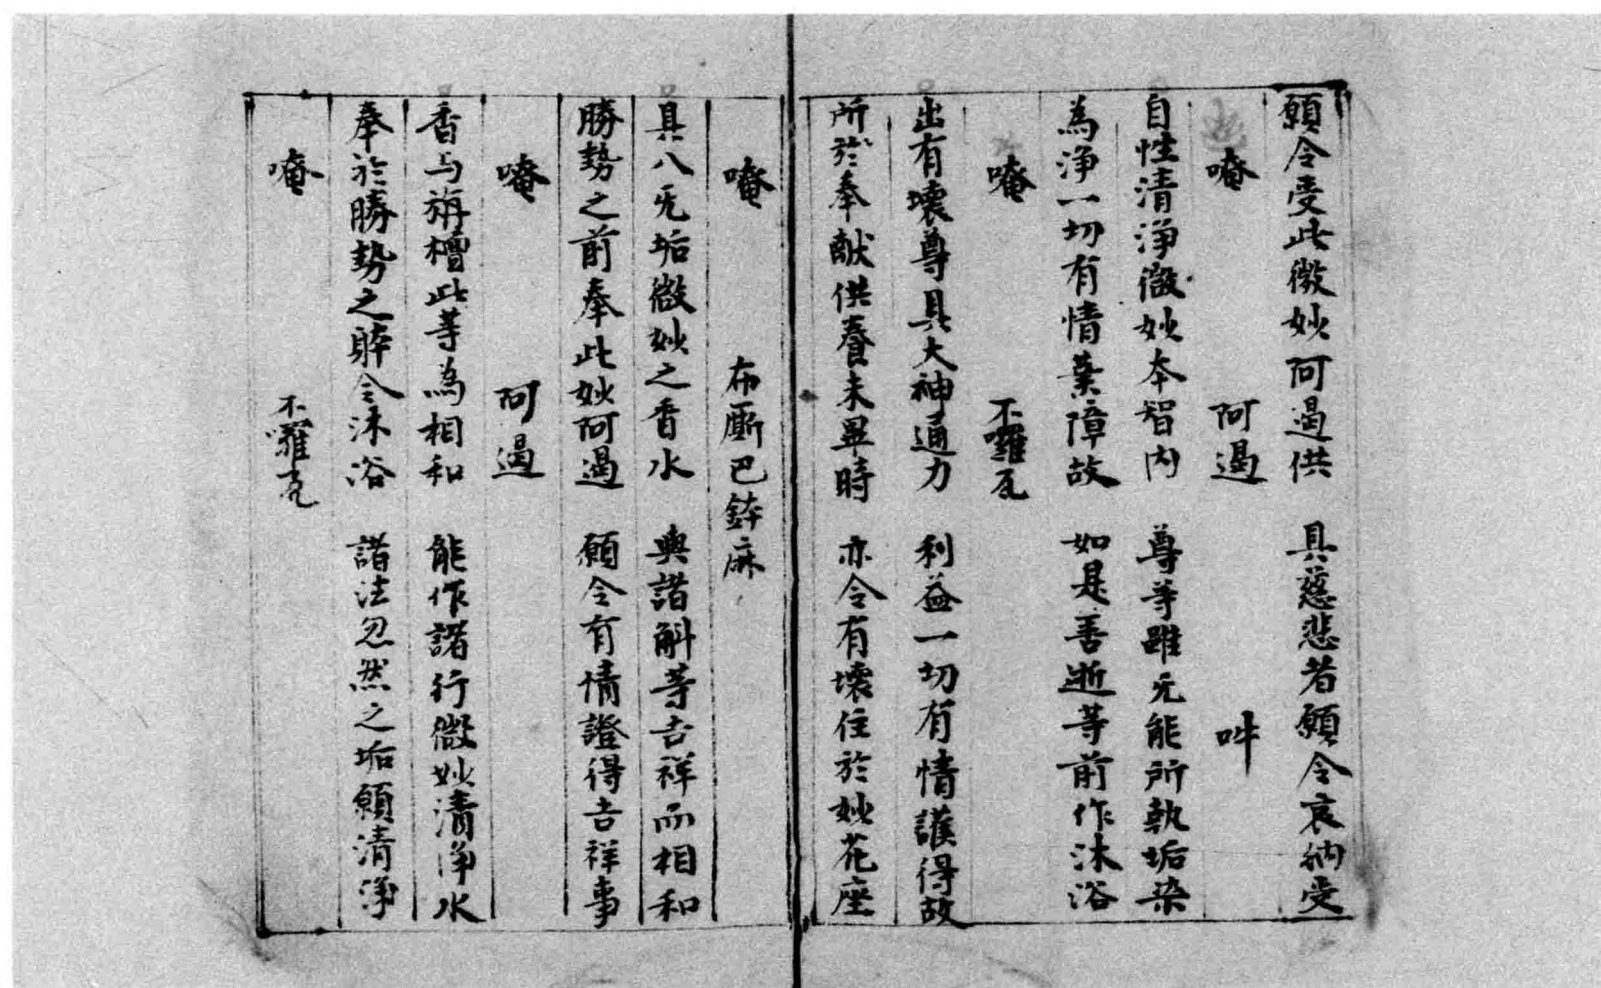 願令受此微妙阿遏供　具慈悲者願令哀納受
唵　阿遏　吽
自性清淨微妙本智内　尊等雖无能所執垢染
為淨一切有情業障故　如是善逝等前作沐浴
唵　不囉瓦
出有壞尊具大神通力　利益一切有情護得故
所於奉献供養未畢時　亦令有壞住於妙花座
唵　布厮巴鉢麻
具八无垢微妙之香水　與諸斛等吉祥而相和
勝勢之前奉此妙阿遏　願令有情證得吉祥事
唵　阿遏
香与旃檀此等為相和　能作諸行微妙清淨水
奉於勝勢之前令沐浴　諸法忽然之垢願清淨
唵　不囉瓦